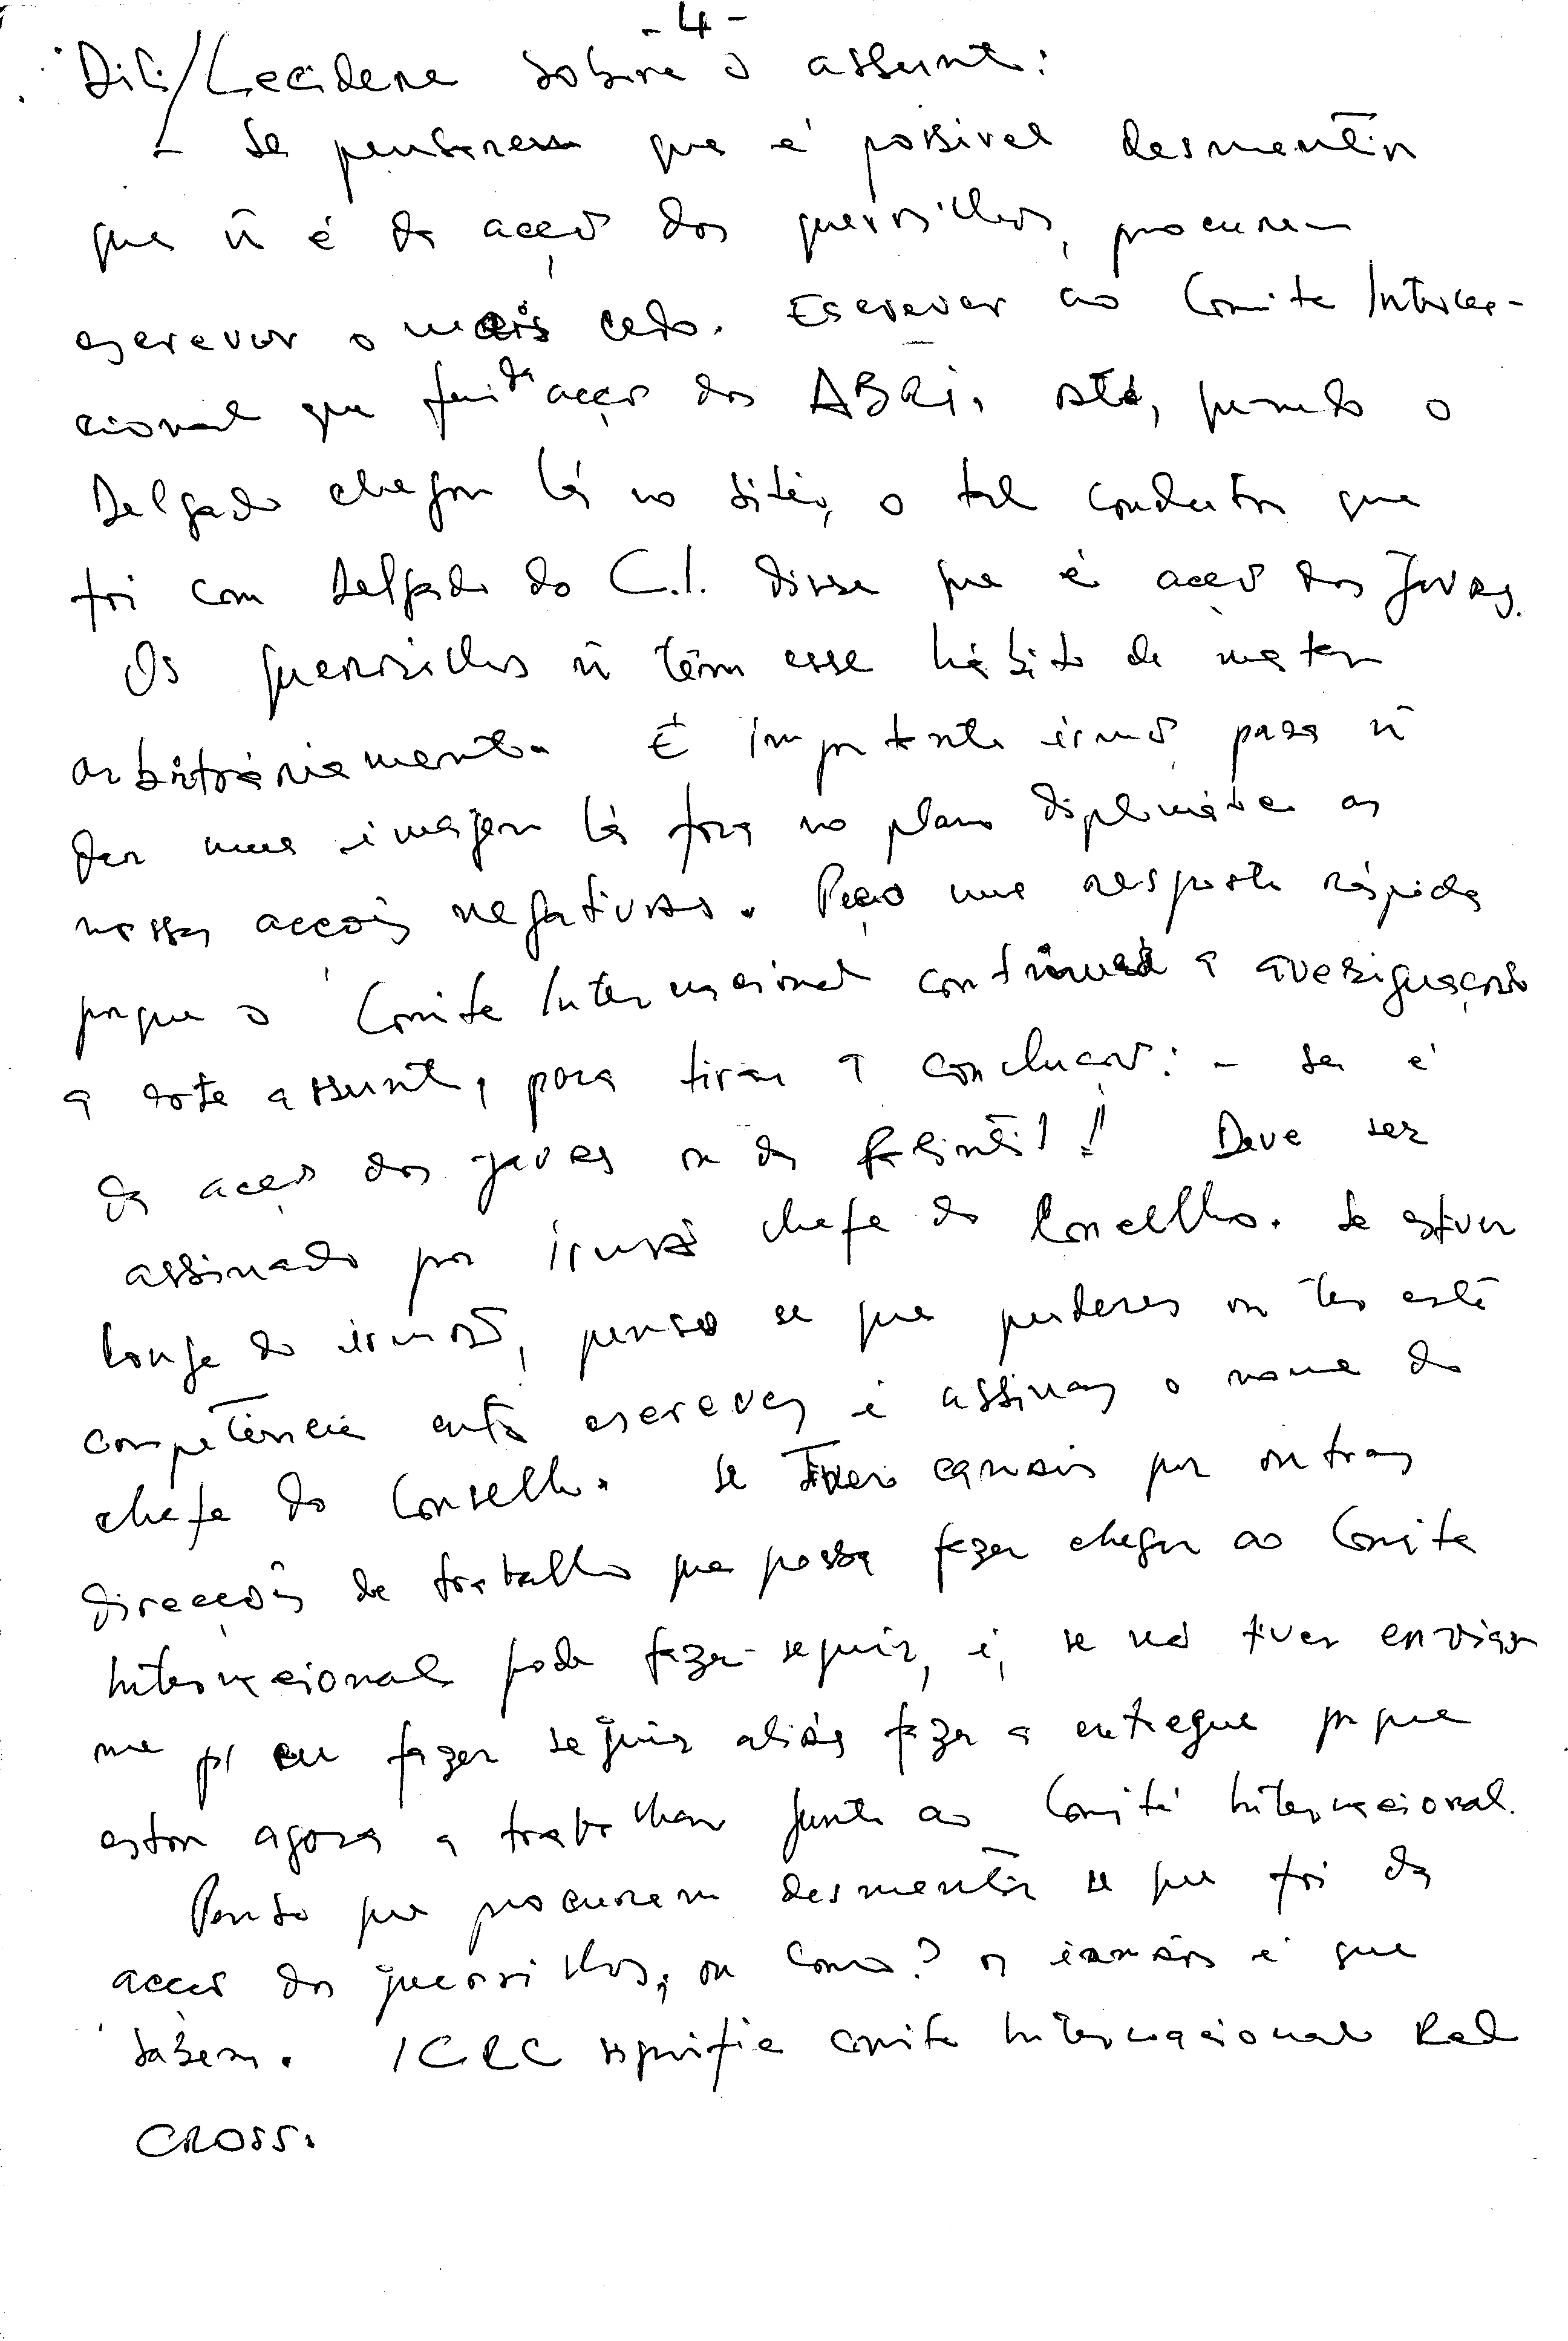 - 4 -
Dili/Lecidere sobre o assunto:
- Se pensarem que é possivel desmentir
que ñ é da acção dos guerrilhos, procurem
escrever o mais cedo. Escrever ao Comite Interna-
cional que foi da acção dos ABRI. Até, quando o
Delgado chegou lá no sitio, o tal condutor que
foi com Delgado do C.I. disse que é acção dos Javas.
Os guerrilhos ñ têm esse hábito de matar
arbitráriamente. É importante irmão para ñ
dar uma imagem lá fora no plano diplomático as
nossas acções negativas. Peço uma resposta rápida
porque o Comite Internacional continua a averiguação
a este assunto, para tirar a conclução: - se é
da acção dos javas ou da falintil! Deve ser
assinado por irmão chefe do Concelho. Se estiver
longe do irmão, penso se que puderes ou tes esté
competência então escreves e assinas o nome do
chefe do Conselho. Se tiver canais por outras
direcções de trabalho que possa fazer chegar ao Comite
Internacional pode fazer-seguir, e, se não tiver enviar
me p/ eu fazer seguir aliás fazer a entregue porque
estou agora a trabalhar junto ao Comité Internacional.
Penso que procurem desmentir se que foi da
acção dos guerrilhos, ou como? os irmãos é que
sabem. ICRC significa comite Internacional Red
CROSS.